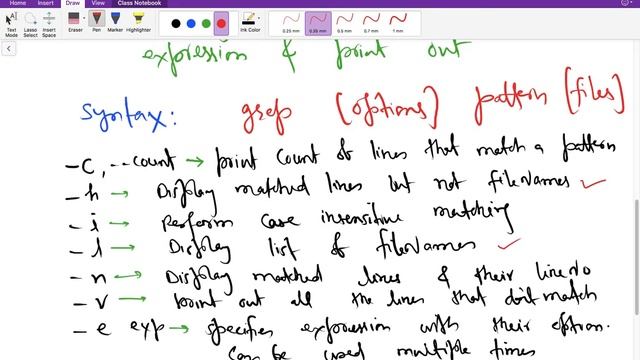 Home Insert Draw View Class Notebook
Text Mode Lasso Select Insert Space Eraser Pen Marker Highlighter Ink Color 0.25 mm 0.35 mm 0.5 mm 0.7 mm 1 mm
expression & print out
syntax: grep [options] pattern [files]
-c, --count → print count of lines that match a pattern
-h → Display matched lines but not fileNames ✓
-i → Perform case insensitive matching
-l → Display list of fileNames ✓
-n → Display matched lines & their lineNo
-v → print out all the lines that don't match
-e exp → specifies expression with their option.
Can be used multiple times